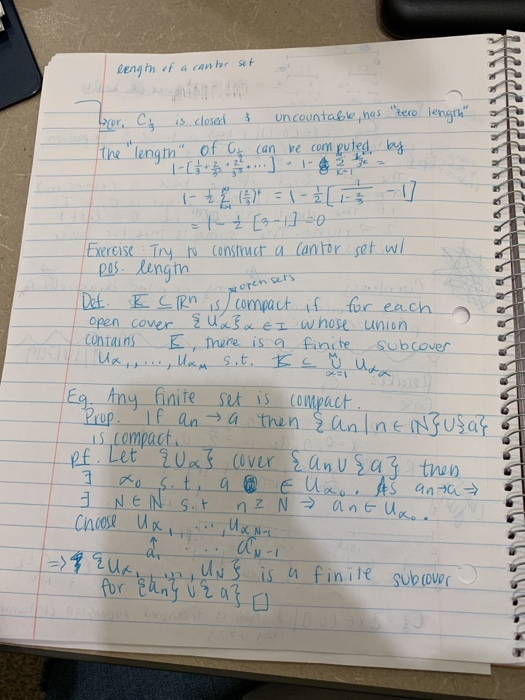 length of a cantor set
↳cor. C_{1/3} is closed & uncountable, has "zero length"
the "length" of C_{1/3} can be computed by
1-[1/3+2/3²+2²/3³+...] = 1-
1-1/2 Σ (2/3)^k = 1-1/2[1/(1-2/3) -1]
= 1-1/2 [3-1] = 0
Exercise: Try to construct a cantor set w/
pos. length
open sets
Def. K ⊆ ℝn is compact if for each
open cover {Uα}α∈I whose union
contains K, there is a finite subcover
Uα1, ..., UαM s.t. K ⊆ ∪ Uα
Eg. Any finite set is compact.
Prop. If an → a then {an | n ∈ ℕ} ∪ {a}
is compact.
pf. Let {Uα} cover {an ∪ {a} then
∃ α0 s.t. a ∈ Uα0. As an→a ⇒
∃ N∈ℕ s.t n ≥ N ⇒ an ∈ Uα0.
Choose Uα1, ..., UαN-1
↑ ↑
a1 ... aN-1
⇒ {Uα, ..., UN} is a finite subcover
for {an} ∪ {a} □